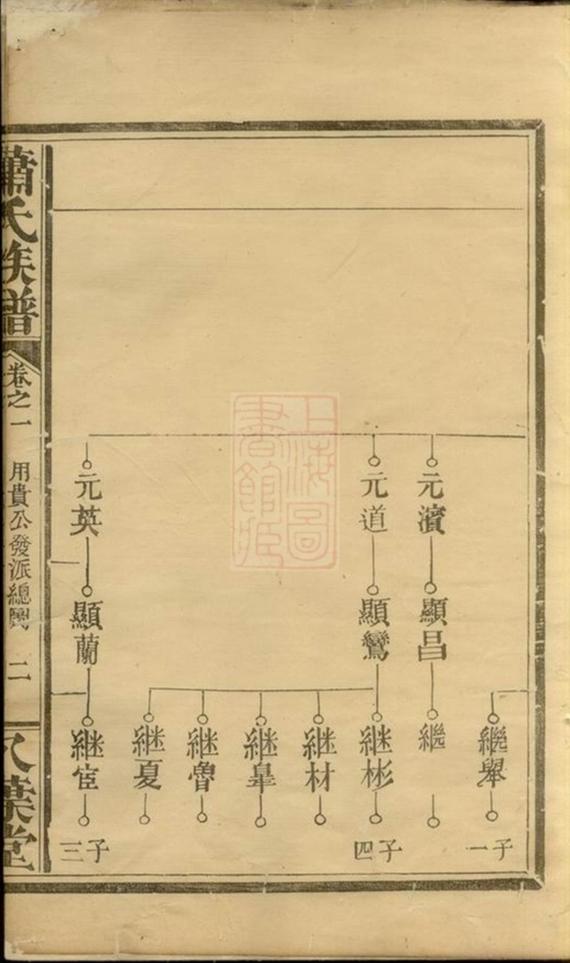 繼舉
子一
元濱
顯昌
繼
元道
顯鸞
継彬
子四
継材
継皐
継魯
継夏
元英
顯蘭
継宦
子三
蕭氏族譜
卷之一
用貴公發派總圖
二
八葉堂
上海圖書館藏